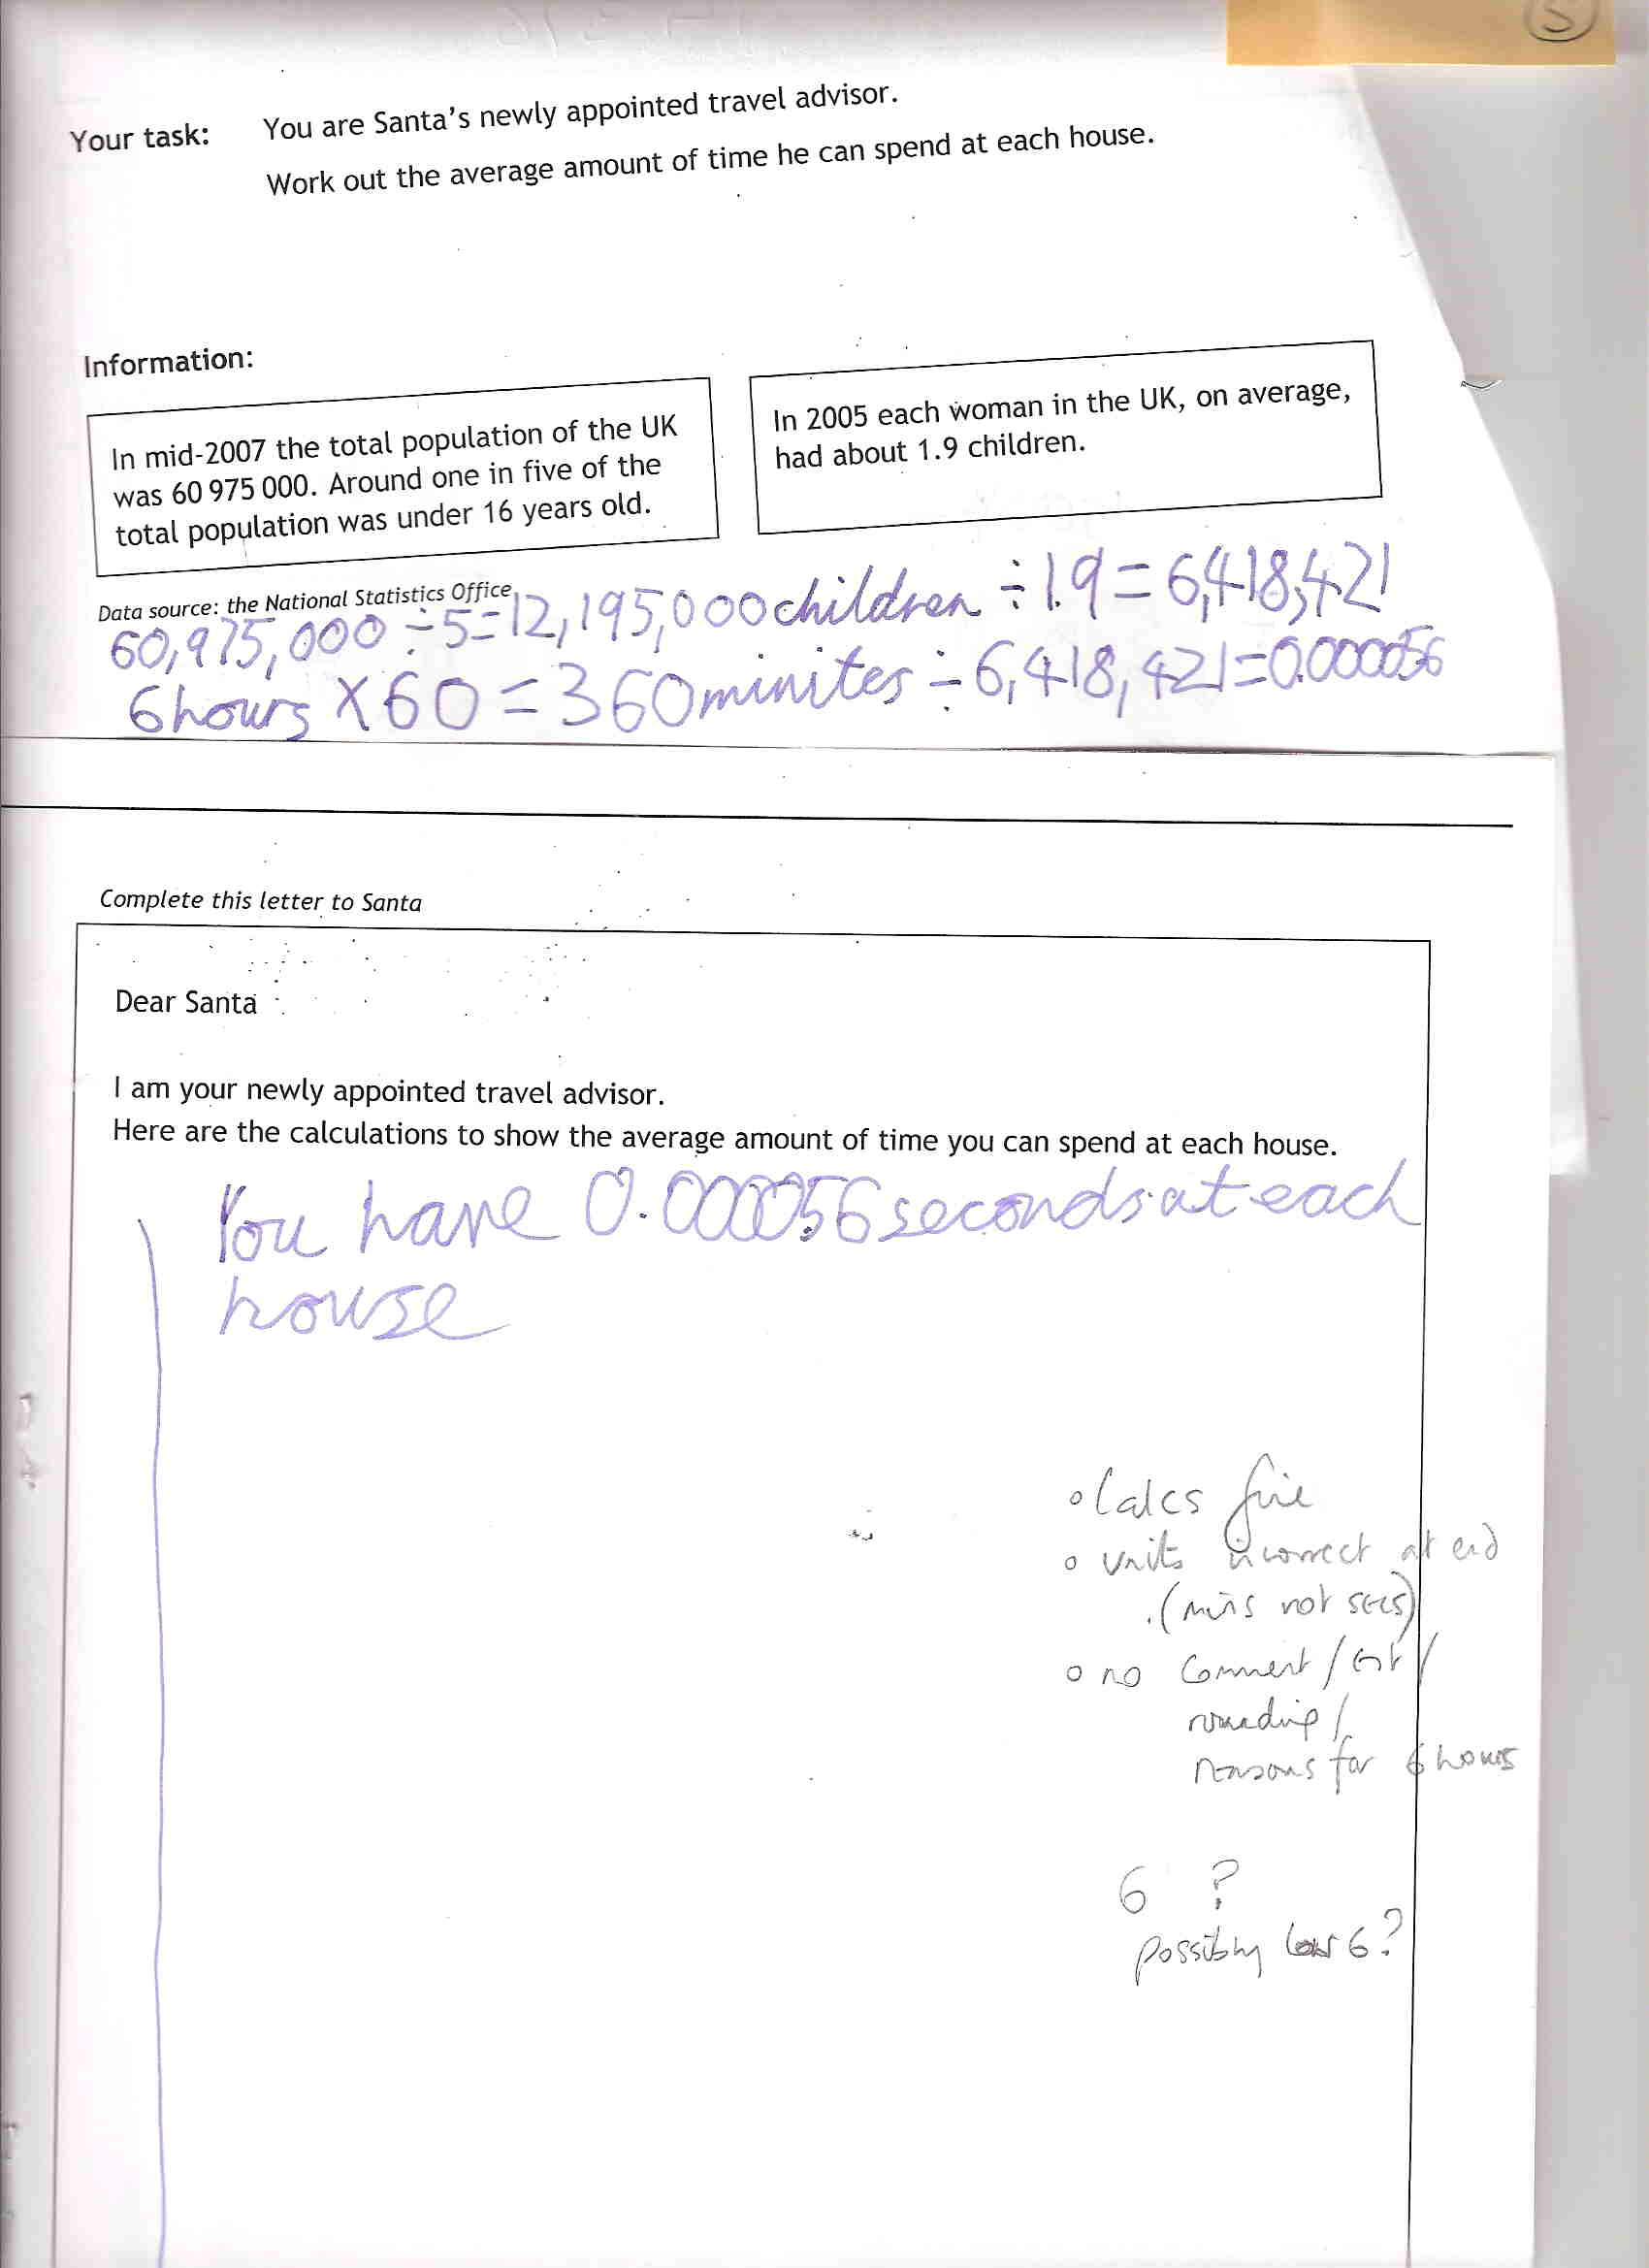 S
Your task: You are Santa's newly appointed travel advisor.
Work out the average amount of time he can spend at each house.
Information:
In mid-2007 the total population of the UK
was 60 975 000. Around one in five of the
total population was under 16 years old.
In 2005 each woman in the UK, on average,
had about 1.9 children.
Data source: the National Statistics Office
60,975,000 ÷ 5 = 12,195,000 children ÷ 1.9 = 6,418,421
6 hours × 60 = 360 minites ÷ 6,418,421 = 0.000056
Complete this letter to Santa
Dear Santa
I am your newly appointed travel advisor.
Here are the calculations to show the average amount of time you can spend at each house.
You have 0.000056 seconds at each
house
o Calcs fine
o units incorrect at end
(mins not secs)
o no comment /
rounding /
reasons for 6 hours
6 ?
possibly low 6?